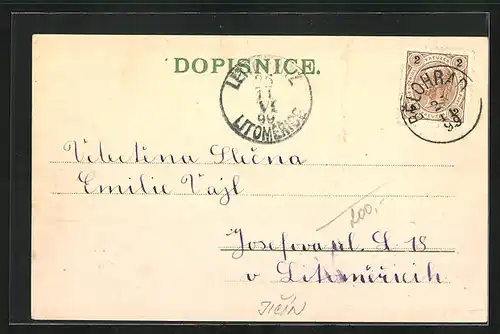 DOPISNICE.
2 2
BĚLOHRAD
99
LITOMĚŘICE
26
11
VI
99
Velectěná Slečna
Emilie Vajl
200,-
Josefova pl. č 18
v Litoměřicích
JIČÍN